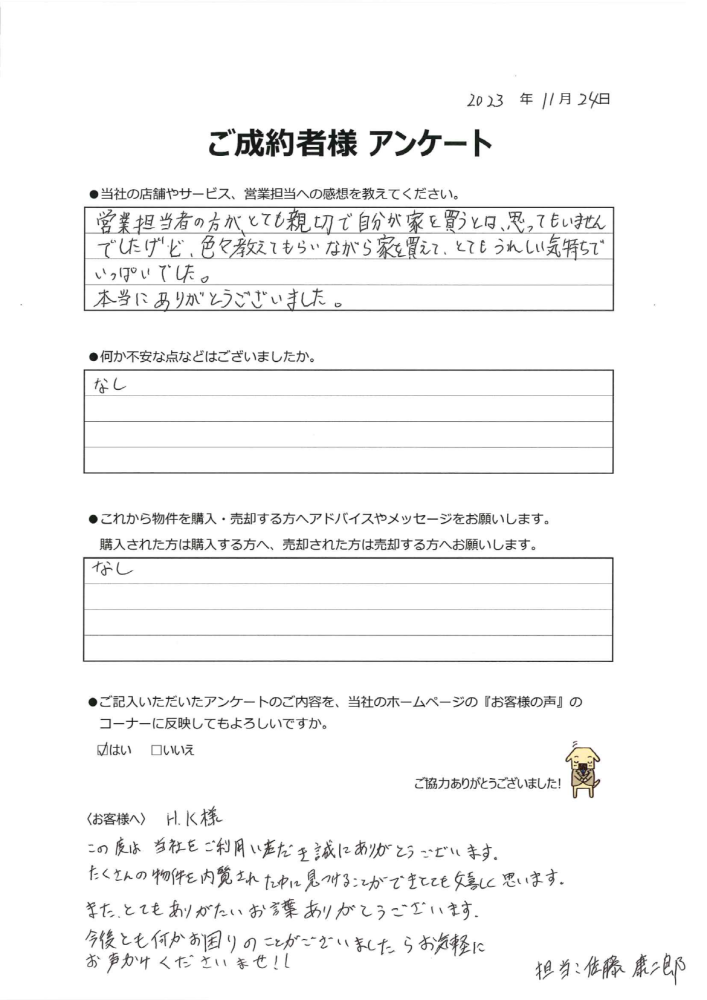 2023 年 11月 24日
ご成約者様 アンケート
●当社の店舗やサービス、営業担当への感想を教えてください。
営業担当者の方が、とても親切で自分が家を買うとは、思ってもいません
でしたけど、色々教えてもらいながら家を買えて、とてもうれしい気持ちで
いっぱいでした。
本当にありがとうございました。
●何か不安な点などはございましたか。
なし
●これから物件を購入・売却する方へアドバイスやメッセージをお願いします。
購入された方は購入する方へ、売却された方は売却する方へお願いします。
なし
●ご記入いただいたアンケートのご内容を、当社のホームページの『お客様の声』の
コーナーに反映してもよろしいですか。
☑はい □いいえ
ご協力ありがとうございました!
〈お客様へ〉 H.K様
この度は 当社をご利用いただき誠にありがとうございます。
たくさんの物件を内覧された中に見つけることができとても嬉しく思います。
また、とてもありがたいお言葉ありがとうございます。
今後とも何かお困りのことがございましたらお気軽に
お声かけくださいませ!!
担当:佐藤 康二郎